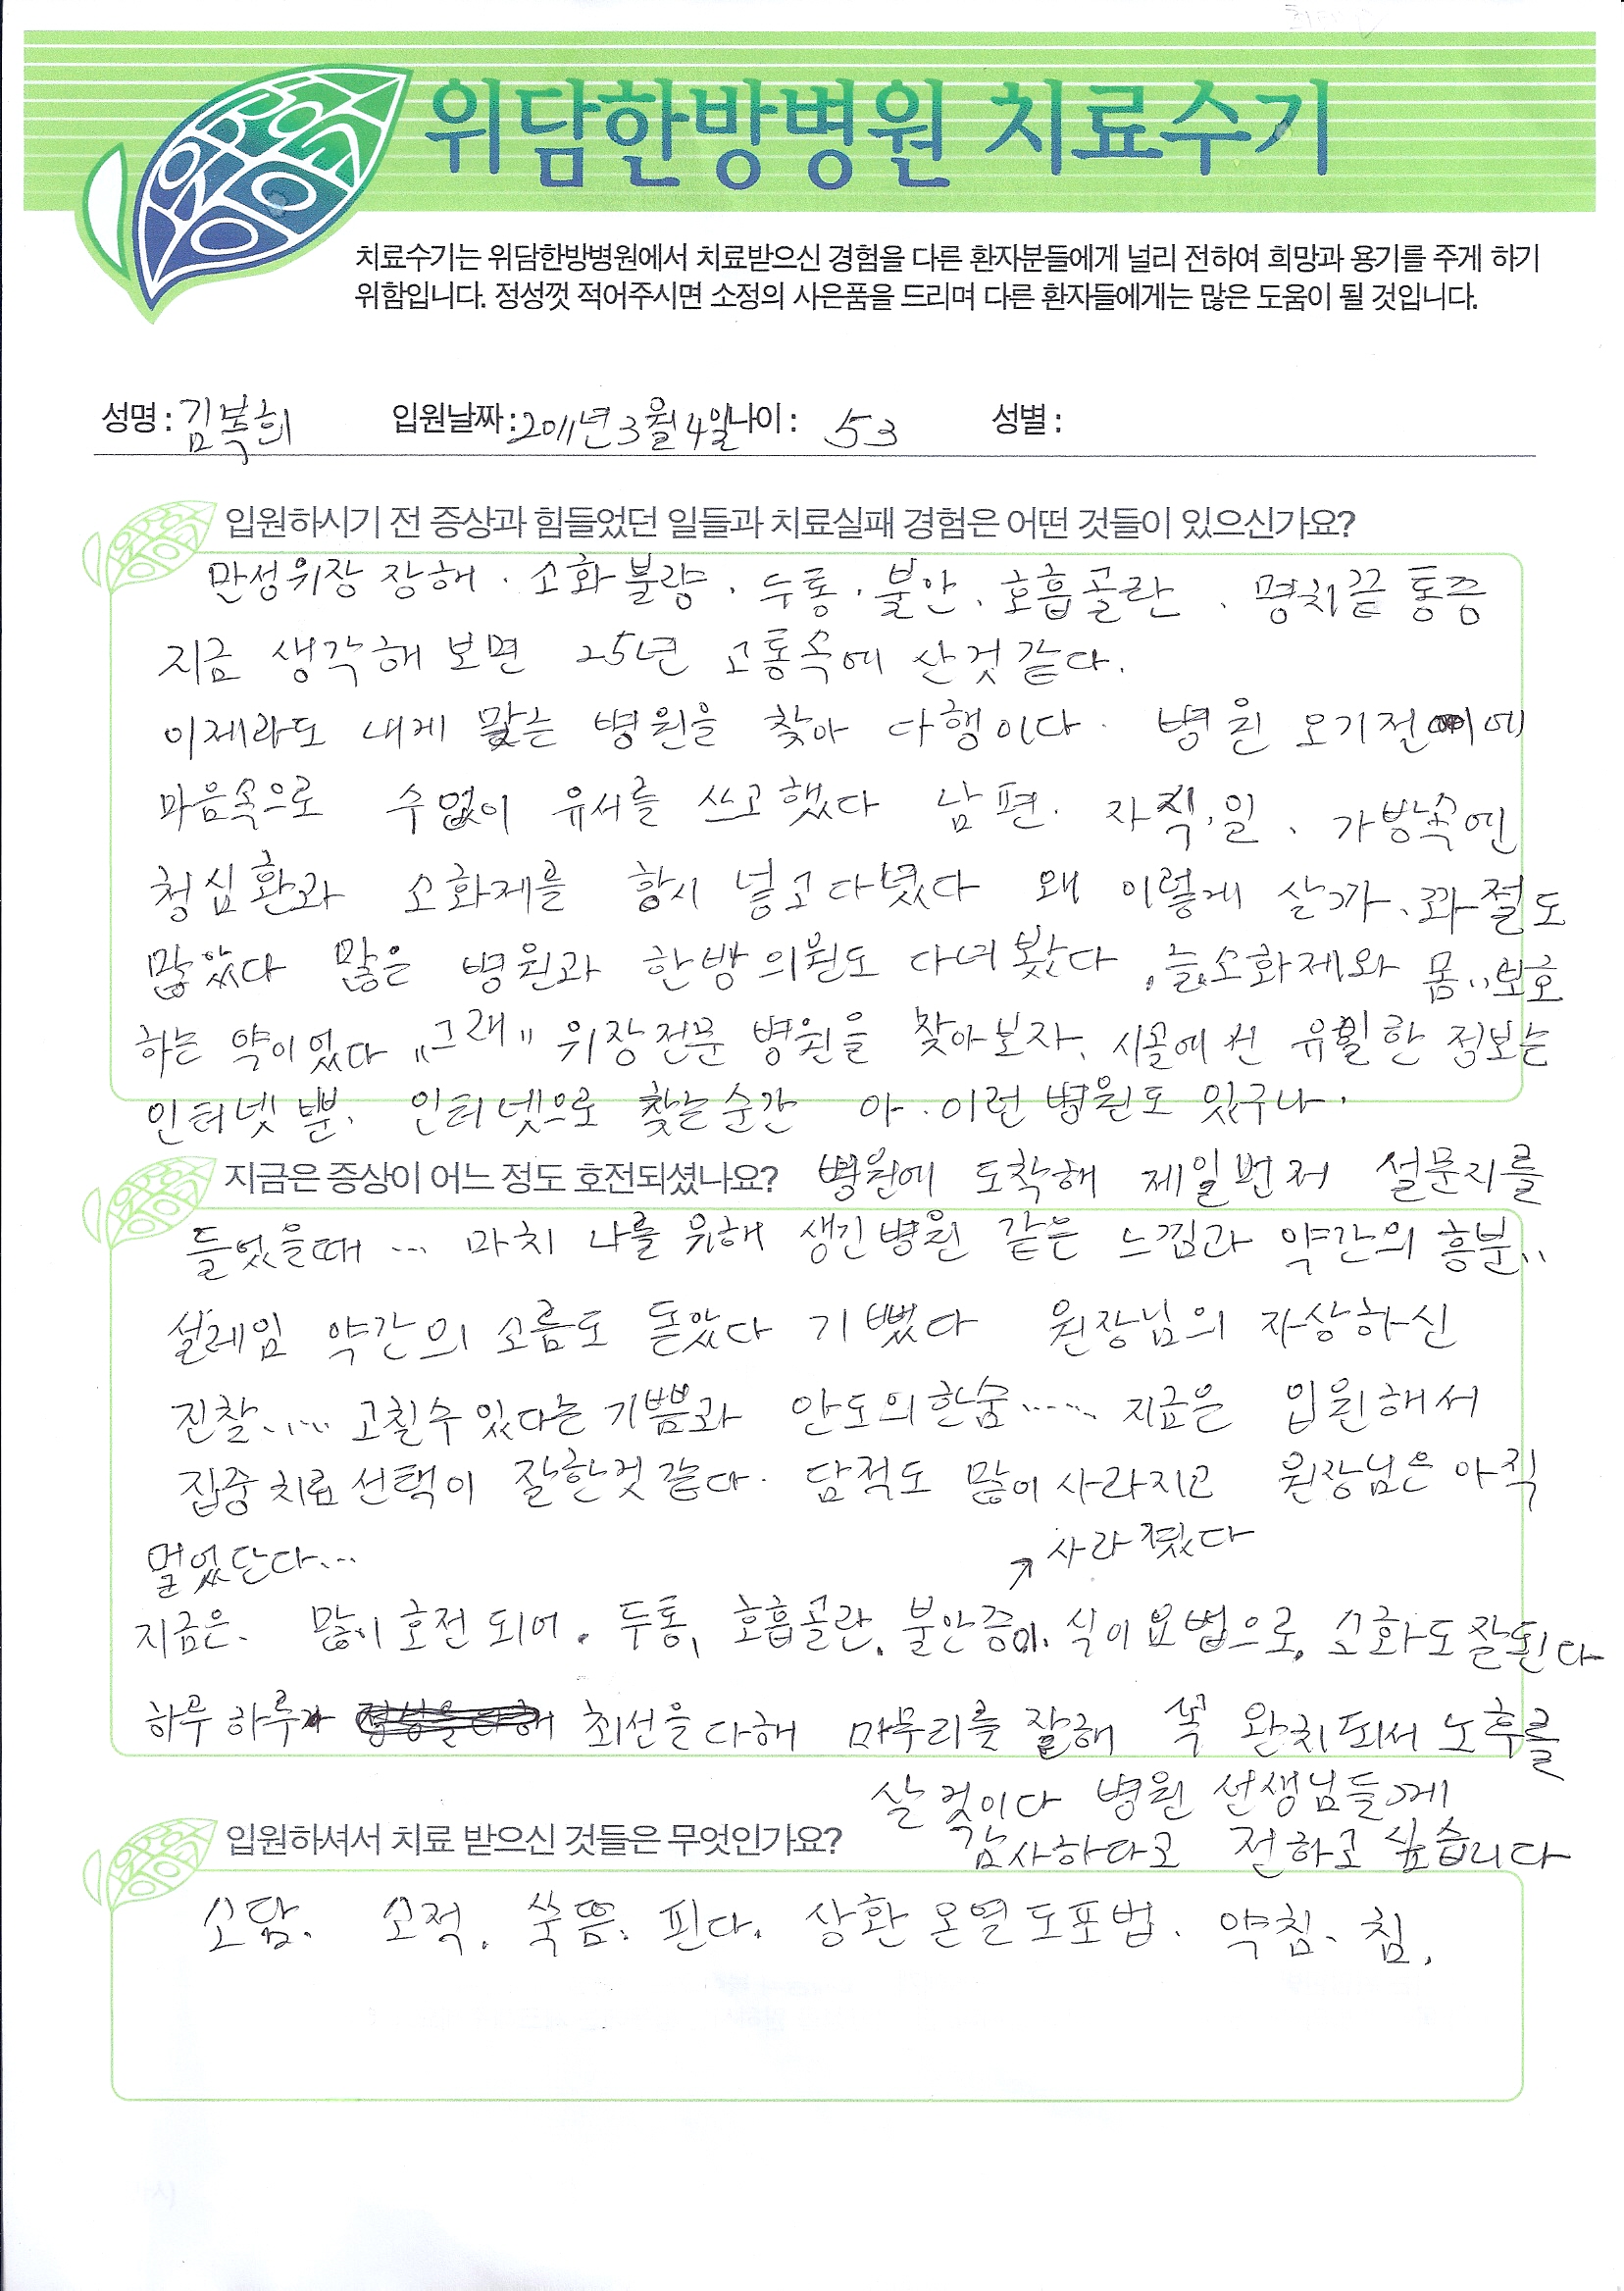 위담한방병원 치료수기
치료수기는 위담한방병원에서 치료받으신 경험을 다른 환자분들에게 널리 전하여 희망과 용기를 주게 하기
위함입니다. 정성껏 적어주시면 소정의 사은품을 드리며 다른 환자들에게는 많은 도움이 될 것입니다.
성명 : 김복희 입원날짜 : 2011년 3월 4일 나이 : 53 성별 :
입원하시기 전 증상과 힘들었던 일들과 치료실패 경험은 어떤 것들이 있으신가요?
만성위장 장해 . 소화불량 . 두통 . 불안 . 호흡골란 . 명치끝 통증
지금 생각해 보면 25년 고통속에 산것 같다.
이제라도 내게 맞는 병원을 찾아 다행이다. 병원 오기전에
마음속으로 수없이 유서를 쓰고했다 남편. 자식. 일 . 가방속엔
청심환과 소화제를 항시 넣고다녔다 왜 이렇게 살가. 좌절도
많았다 많은 병원과 한방의원도 다녀봤다 . 늘소화제와 몸.. 보호
하는 약이었다 "그래" 위장전문 병원을 찾아보자. 시골에선 유일한 정보는
인터넷 뿐. 인터넷으로 찾는순간 아. 이런 병원도 있구나.
지금은 증상이 어느 정도 호전되셨나요? 병원에 도착해 제일번저 설문지를
들었을때 ... 마치 나를 위해 생긴병원 같은 느낌과 약간의 흥분..
설레임 약간의 소름도 돋았다 기뻤다 원장님의 자상하신
진찰..... 고칠수 있다는 기쁨과 안도의한숨..... 지금은 입원해서
집중치료 선택이 잘한것 같다. 담적도 많이 사라지고 원장님은 아직
멀었단다...
↗ 사라졌다
지금은. 많이 호전 되어. 두통, 호흡골란. 불안증이. 식이요법으로. 소화도 잘된다
하루 하루 최선을다해 마무리를 잘해 꼭 완치되서 노후를
살 것이다 병원 선생님들게
감사하다고 전하고 싶습니다
입원하셔서 치료 받으신 것들은 무엇인가요?
소담. 소적. 쑥뜸. 핀다. 상환 온열도포법. 약침. 침.